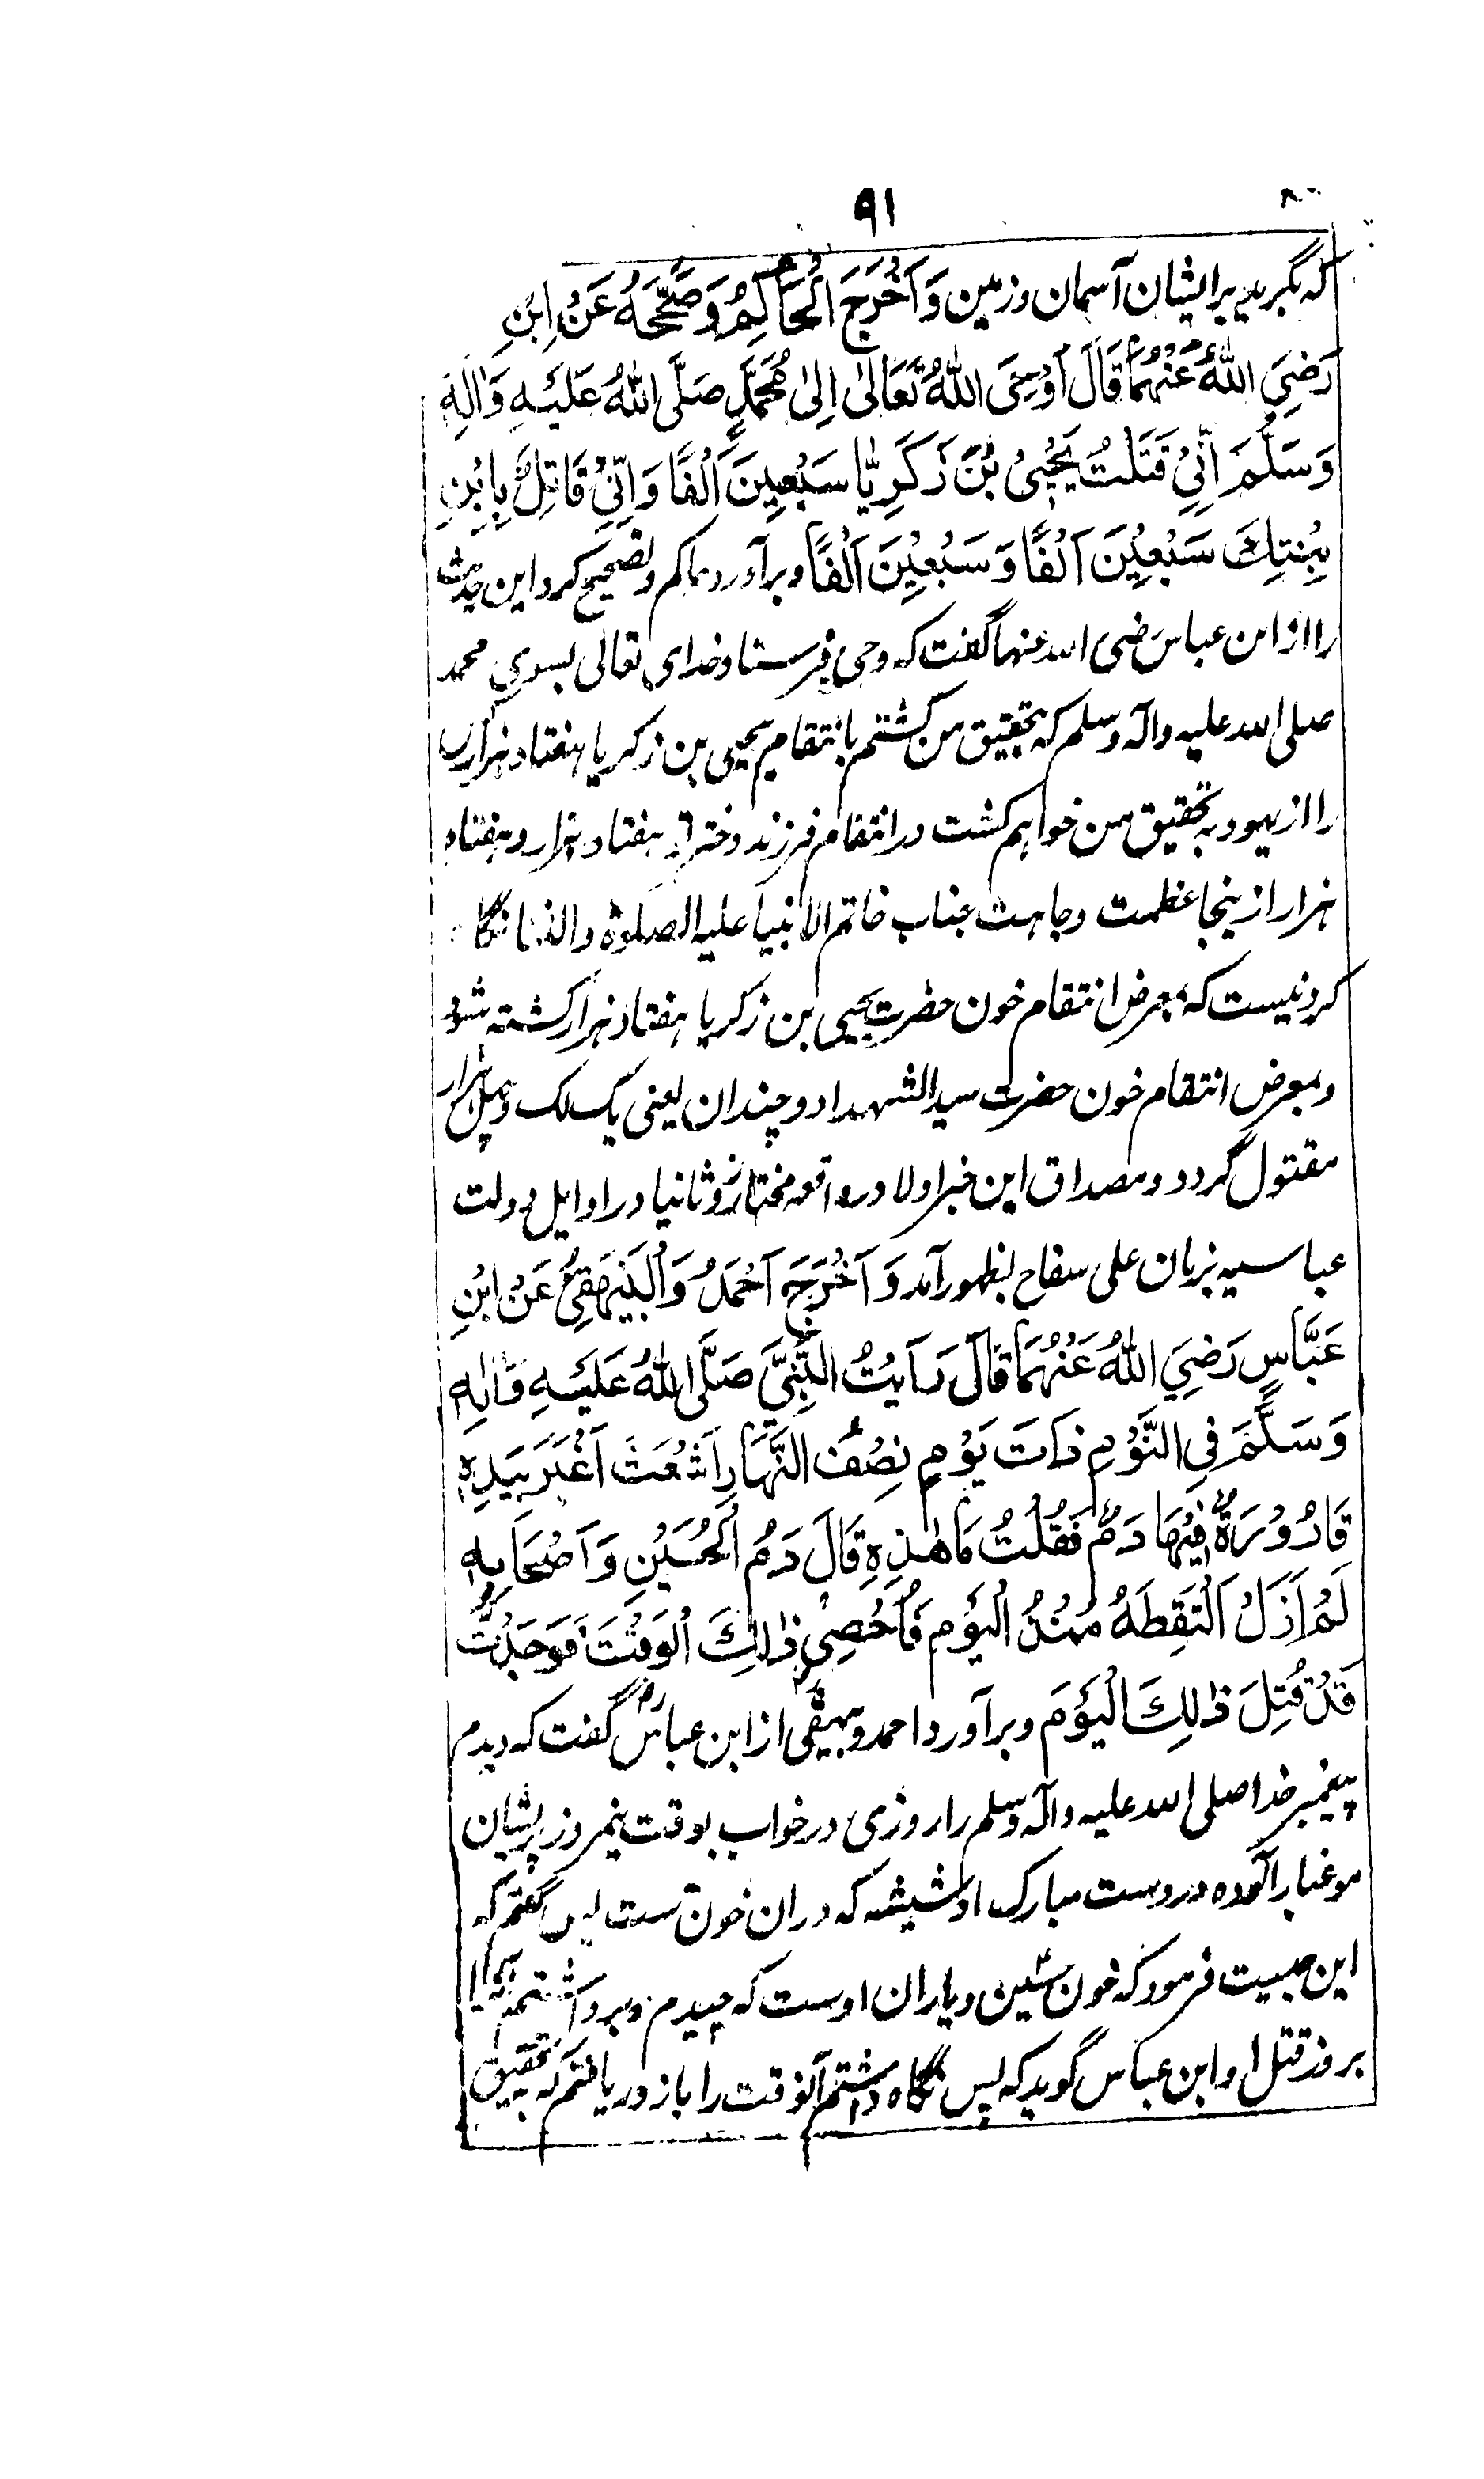 ۹۱
که بگرید برایشان آسمان و زمین وَاَخْرَجَ الْحَاکِمُ وَصَحَّحَهُ عَنْ اِبْنِ
رَضِیَ اللهُ عَنْهُمَا قَالَ اَوْحَی اللهُ تَعَالٰی اِلٰی مُحَمَّدٍ صَلَّی اللهُ عَلَیْهِ وَاٰلِهِ
وَسَلَّمَ اَنِّیْ قَتَلْتُ یَحْیٰی بْنَ زَکَرِیَّا سَبْعِینَ اَلْفًا وَاِنِّیْ قَاتِلٌ بِابْنِ
بِنْتِكَ سَبْعِیْنَ اَلْفًا وَسَبْعِیْنَ اَلْفًا وبرآورد حاکم وتصحیح کرد این حدیث
را از ابن عباس رضی الله عنهما گفت که وحی فرستاد خدای تعالی بسوی محمد
صلی الله علیه وآله وسلم که بتحقیق من کشتم بانتقام یحیی بن زکریا هفتاد هزار
را از یهود به تحقیق من خواهم کشت در انتقام فرزند دختر تو هفتاد هزار و هفتاد
هزار ازینجا عظمت وجاهت جناب خاتم الانبیا علیه الصلوة والثنا نگاه
کردنیست که بمعرض انتقام خون حضرت یحیی بن زکریا هفتاد هزار کشته شود
وبمعرض انتقام خون حضرت سید الشهدا دو چندان یعنی یک لک و چهل هزار
مقتول گردد ومصداق این خبر اولا در واقعه مختار و ثانیا در اوایل دولت
عباسیه بزبان علی سفاح بظهور آمد وَاَخْرَجَ اَحْمَدُ وَالْبَیْهَقِیُّ عَنْ ابْنِ
عَبَّاسٍ رَضِیَ اللهُ عَنْهُمَا قَالَ رَاَیْتُ النَّبِیَّ صَلَّی اللهُ عَلَیْهِ وَاٰلِهِ
وَسَلَّمَ فِی النَّوْمِ ذَاتَ یَوْمٍ نِصْفَ النَّهَارِ اَشْعَثَ اَغْبَرَ بِیَدِهِ
قَارُوْرَةٌ فِیْهَا دَمٌ فَقُلْتُ مَا هٰذِهِ قَالَ دَمُ الْحُسَیْنِ وَاَصْحَابِهِ
لَمْ اَزَلْ اَلْتَقِطُهُ مُنْذُ الْیَوْمِ فَاُحْصِیْ ذٰلِكَ الْوَقْتَ فَوَجَدْتُ
قَدْ قُتِلَ ذٰلِكَ الْیَوْمَ وبرآورد احمد وبیهقی از ابن عباس رض گفت که دیدم
پیغمبر خدا صلی الله علیه وآله وسلم را روزی در خواب بوقت نیمروز پریشان
مو غبار آلوده در دست مبارک او شیشه که در ان خونست پس گفتم که
این چیست فرمود که خون حسین ویاران اوست که چیدم و برداشتم
بروز قتل او ابن عباس گوید که پس نگاه داشتم آنوقت را باز دریافتم که به تحقیق